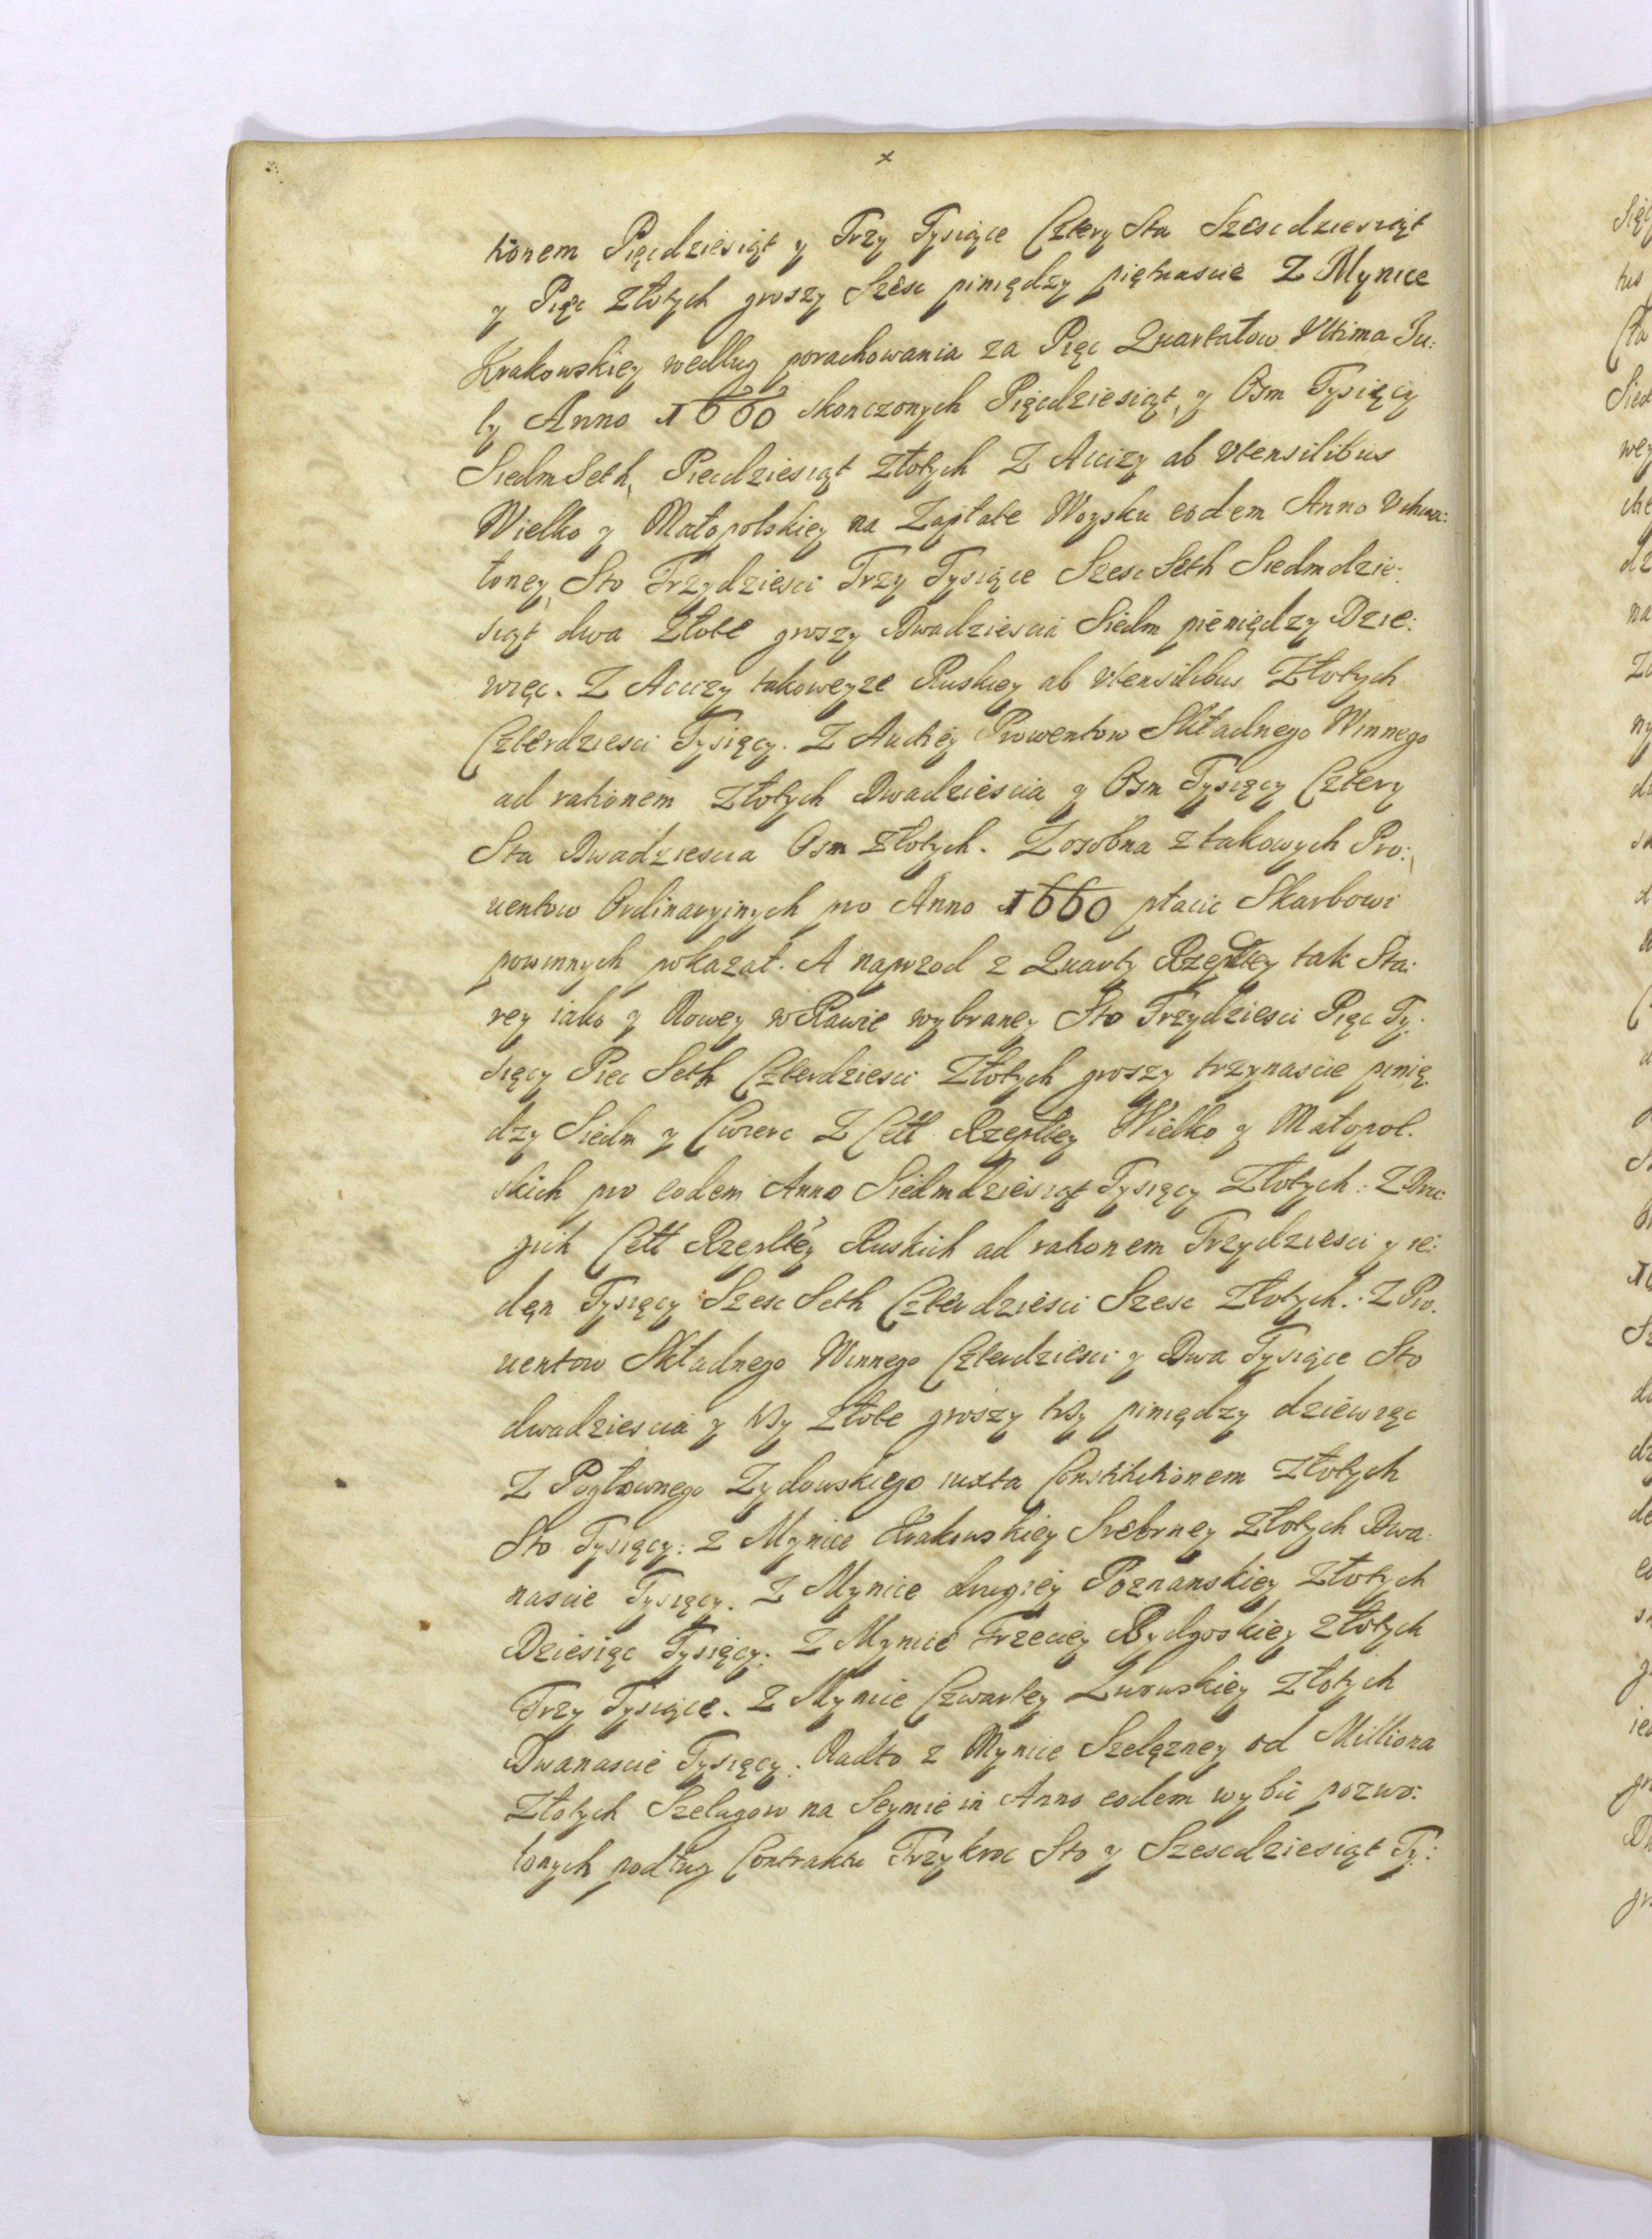 x
tionem Pięcdziesiąt y Trzy Tysiące Cztery Sta Szescdziesiąt
y Pięc Złotych groszy Szesc piniędzy piętnascie Z Mynice
Krakowskiey według porachowania za Pięc Quartałow Vltima Iu:
ly Anno 1660 skonczonych Pięcdziesiąt y Osm Tysięcy
Siedm Seth Piecdziesiąt Złotych Z Accizy ab Vtensilibus
Wielko y Małopolskiey na Zapłate Woysku eodem Anno Vchwa:
loney Sto Trzydziesci Trzy Tysiące Szesc Seth Siedmdzie:
siąt dwa Złote groszy Dwadziescia Siedm pieniędzy Dzie:
więc. Z Accizy takoweyze Ruskiey ab Vtensilibus Złotych
Czterdziesci Tysięcy. Z Aukcyey Prowentow Składnego Winnego
ad rationem Złotych Dwadziescia y Osm Tysięcy Cztery
Sta Dwadziescia Osm Złotych. Zosobna z takowych Pro:
uentow Ordinaryinych pro Anno 1660 płacic Skarbowi
powinnych pokazał. A naprzod z Quarty Rzeptey tak Sta:
rey iako y Nowey w Rawie wybraney Sto Trzydziesci Pięc Ty:
sięcy Piec Seth Czterdziesci Złotych groszy trzynascie pinię
dzy Siedm y Cwierc Z Cełł Rzeptey Wielko y Małopol.
skich pro eodem Anno Siedmdziesiąt Tysięcy Złotych: Z Dru:
gich Cełł Rzeptey Ruskich ad rationem Trzydziesci y ie:
dęn Tysięcy Szesc Seth Czterdziesci Szesc Złotych: Z Pro.
uentow Składnego Winnego Czterdziesci y Dwa Tysiące Sto
dwadziescia y trzy Złote groszy trzy piniędzy dziewięc
Z Pogłownego Zydowskiego iuxta Constitutionem Złotych
Sto Tysięcy: z Mynice Krakowskiey Srebrney Złotych Dwa:
nascie Tysięcy. Z Mynice drugiey Poznanskiey Złotych
Dziesięc Tysięcy: Z Mynice Trzeciey Bydgoskiey Złotych
Trzy Tysiące. Z Mynice Czwartey Lwowskiey Złotych
Dwanascie Tysięcy: Nadto z Mynice Szelęzney od Milliona
Złotych Szelągow na Seymie in Anno eodem wybic pozwo:
lonych podług Contraktu Trzykroc Sto y Szescdziesiąt Ty: